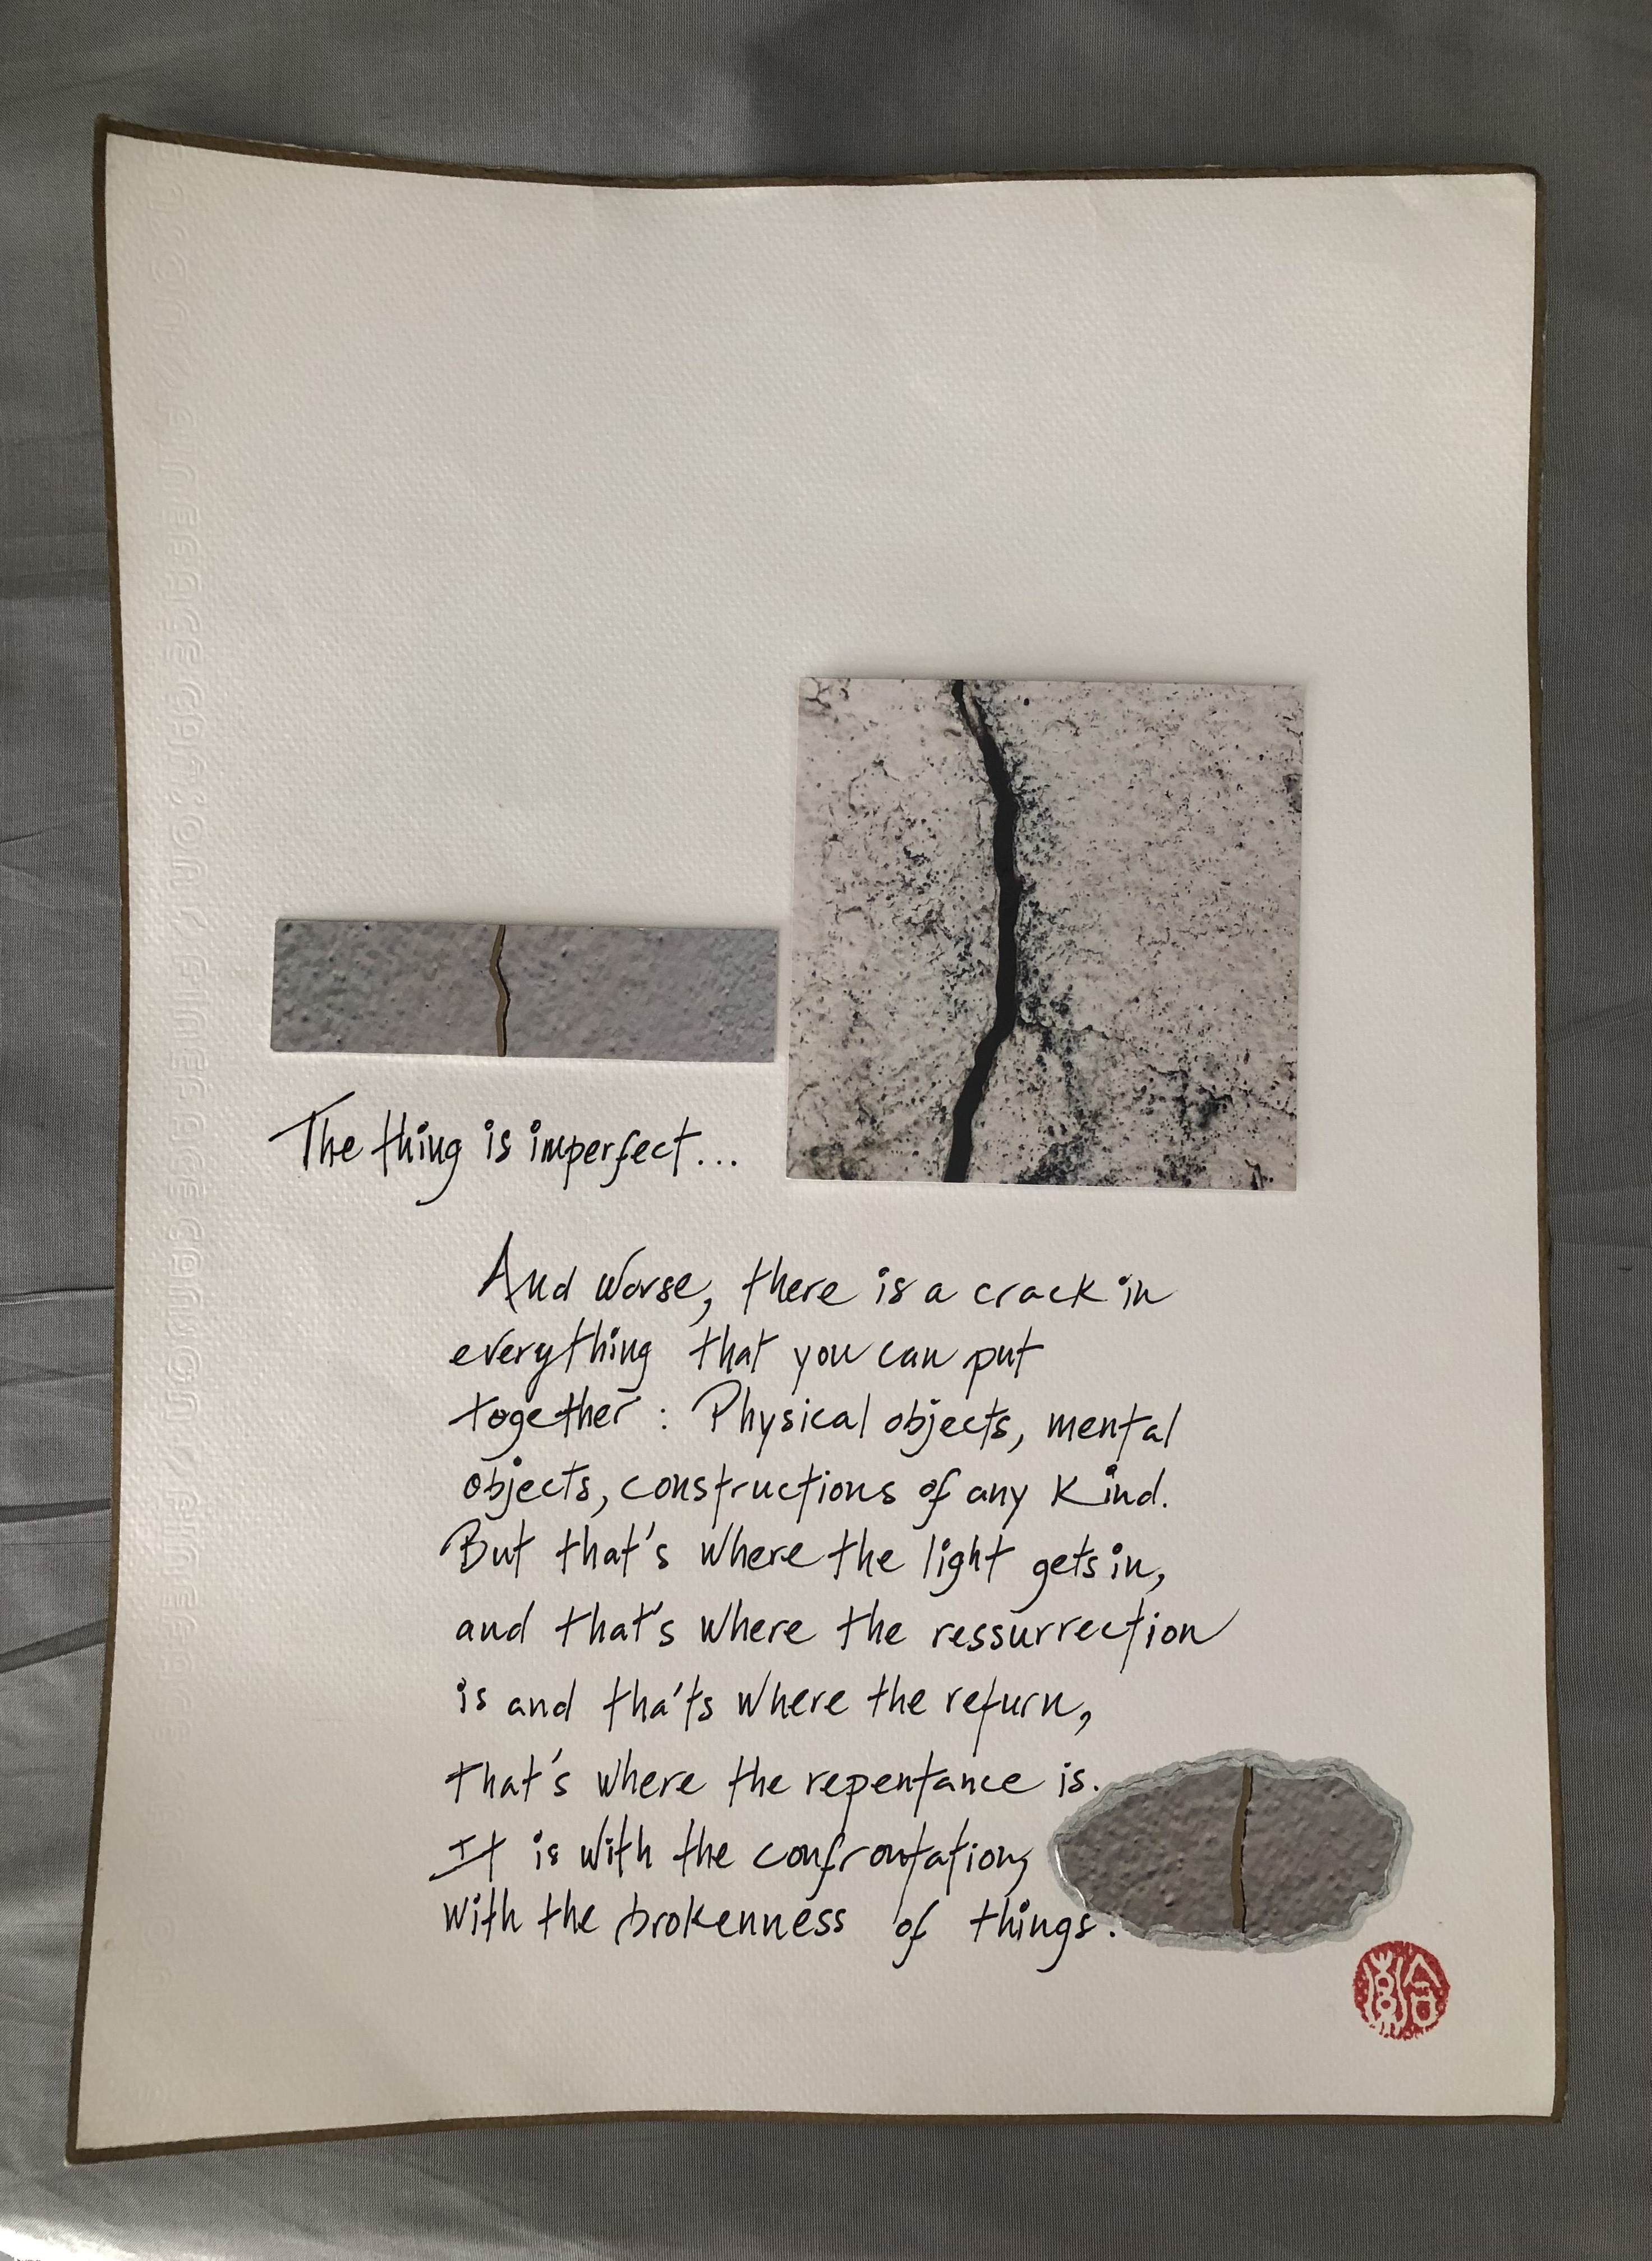 The thing is imperfect...
And worse, there is a crack in
everything that you can put
together: Physical objects, mental
objects, constructions of any kind.
But that's where the light gets in,
and that's where the ressurrection
is and tha'ts where the return,
that's where the repentance is.
It is with the confrontation,
with the brokenness of things.